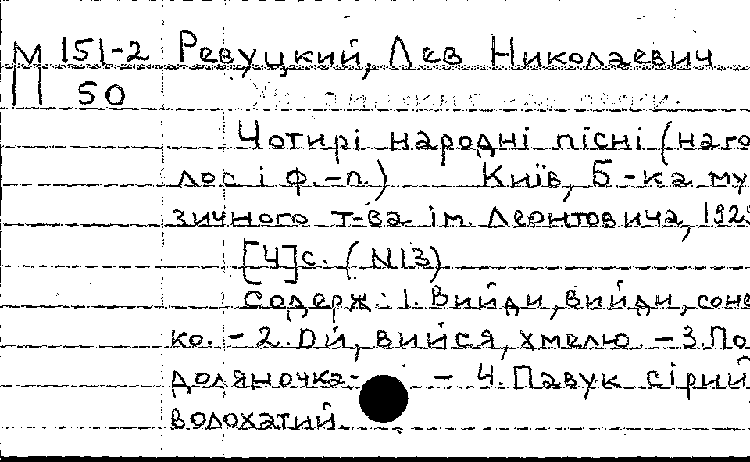 М 151-2 Ревуцкий, Лев Николаевич
11 50
Чотирі народні пісні (на го
лос і ф.-п.) Київ, Б-ка му
зичного т-ва ім. Леонтовича, 192
[4]с. (N13)
Содерж.: 1. Вийди, вийди, соне
ко. - 2. Ой, вийся, хмелю - 3. По
доляночка - 4. Павук сірий
волохатий.